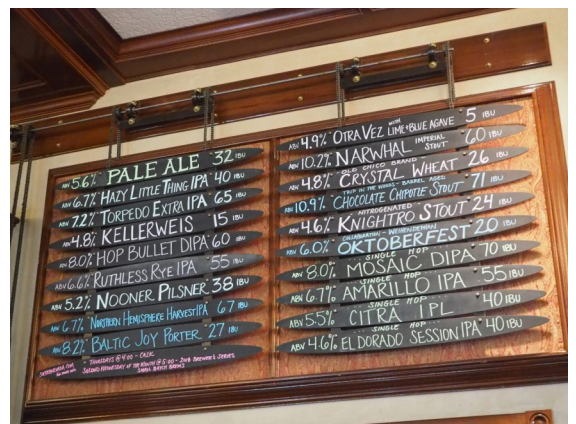 ABV 5.6% PALE ALE 32 IBU
ABV 6.7% HAZY LITTLE THING IPA 40 IBU
ABV 7.2% TORPEDO EXTRA IPA 65 IBU
ABV 4.8% KELLERWEIS 15 IBU
ABV 8.0% HOP BULLET DIPA 60 IBU
ABV 6.6% RUTHLESS RYE IPA 55 IBU
ABV 5.2% NOONER PILSNER 38 IBU
ABV 6.7% NORTHERN HEMISPHERE HARVEST IPA 67 IBU
ABV 8.2% BALTIC JOY PORTER 27 IBU
THURSDAYS @ 4:00 - CASK
SECOND WEDNESDAY OF THE MONTH @ 5:00 -
SMALL BATCH BREWS
ABV 4.9% OTRA VEZ WITH LIME & BLUE AGAVE 5 IBU
ABV 10.2% NARWHAL IMPERIAL STOUT 60 IBU
OLD CHICO BRAND
ABV 4.8% CRYSTAL WHEAT 26 IBU
TRIP IN THE WOODS - BARREL AGED
ABV 10.9% CHOCOLATE CHIPOTLE STOUT 71 IBU
NITROGENATED
ABV 4.6% KNIGHTRO STOUT 24 IBU
COLLABORATION - WEIHENSTEPHAN
ABV 6.0% OKTOBERFEST 20 IBU
SINGLE HOP
ABV 8.0% MOSAIC DIPA 70 IBU
SINGLE HOP
ABV 6.7% AMARILLO IPA 55 IBU
SINGLE HOP
ABV 5.5% CITRA IPL 40 IBU
SINGLE HOP
ABV 4.6% EL DORADO SESSION IPA 40 IBU